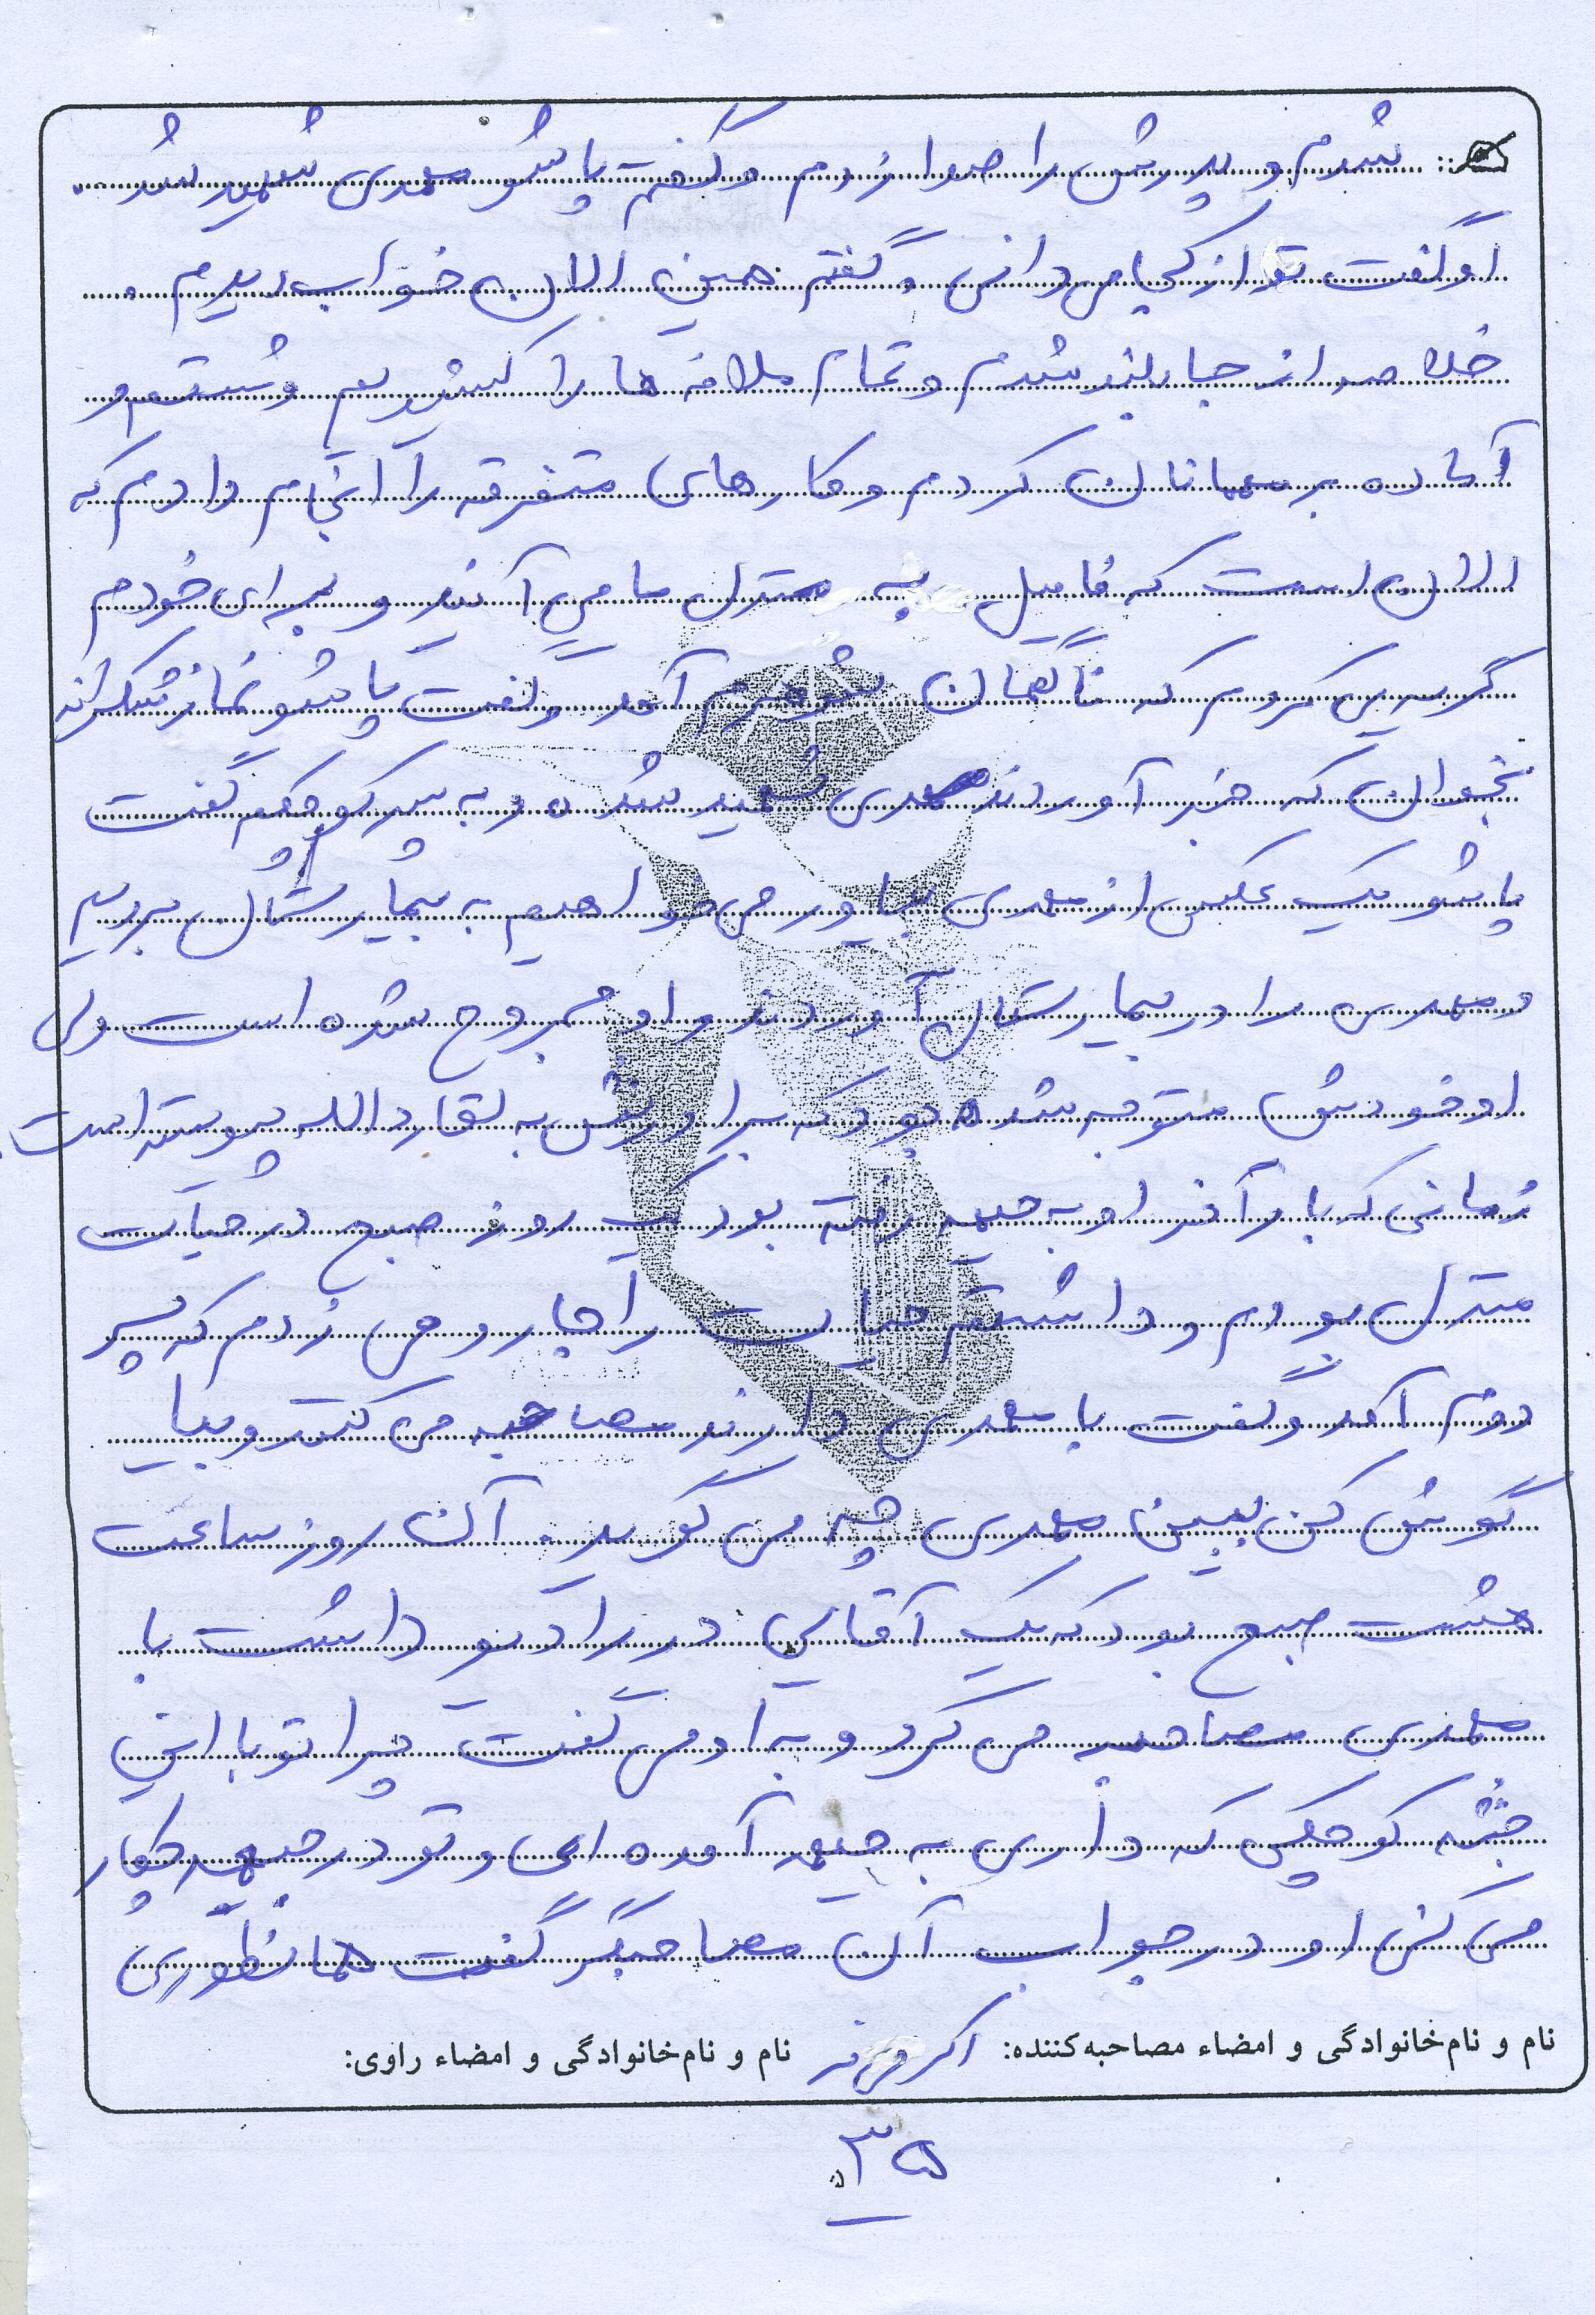 شدم و پدرش را صدا زدم و گفتم پاشو مهدی شهید شد.
او گفت تو از کجا می دانی و گفتم همین الان خواب دیدم.
خلاصه از جا بلند شدم و تمام ملافه ها را کشیدیم و شستم و
آماده بر مهمانان کردم و کارهای متفرقه را انجام دادم که
الان است که فامیل به منزل ما می آیند و برای خودم
گریه می کردم که ناگهان شوهرم آمد و گفت پاشو نماز شکرانه
بخوان که خبر آوردند مهدی شهید شده و به پسر کوچکم گفت
پاشو یک عکس از مهدی بیاور می خواهیم به بیمارستان ببریم
و مهدی را در بیمارستان آوردند و او مجروح شده است ولی
او خودش متوجه شده بود که برادرش به لقاء الله پیوسته است.
زمانی که بار آخر او به جبهه رفته بود یک روز صبح در حیات
منزل بودم و داشتم حیات را جارو می زدم که پسر
دوم آمد و گفت با مهدی دارند مصاحبه می کنند و بیا
گوش کن ببین مهدی چه می گوید. آن روز ساعت
هشت صبح بود که یک آقایی در رادیو داشت با
مهدی مصاحبه می کرد و به او می گفت چرا تو با این
جثه کوچکی که داری به جبهه آمده ای و تو در جبهه چکار
می کنی او در جواب آن مصاحبگر گفت همانطوری
نام و نام خانوادگی و امضاء مصاحبه کننده: نام و نام خانوادگی و امضاء راوی:
۳۵